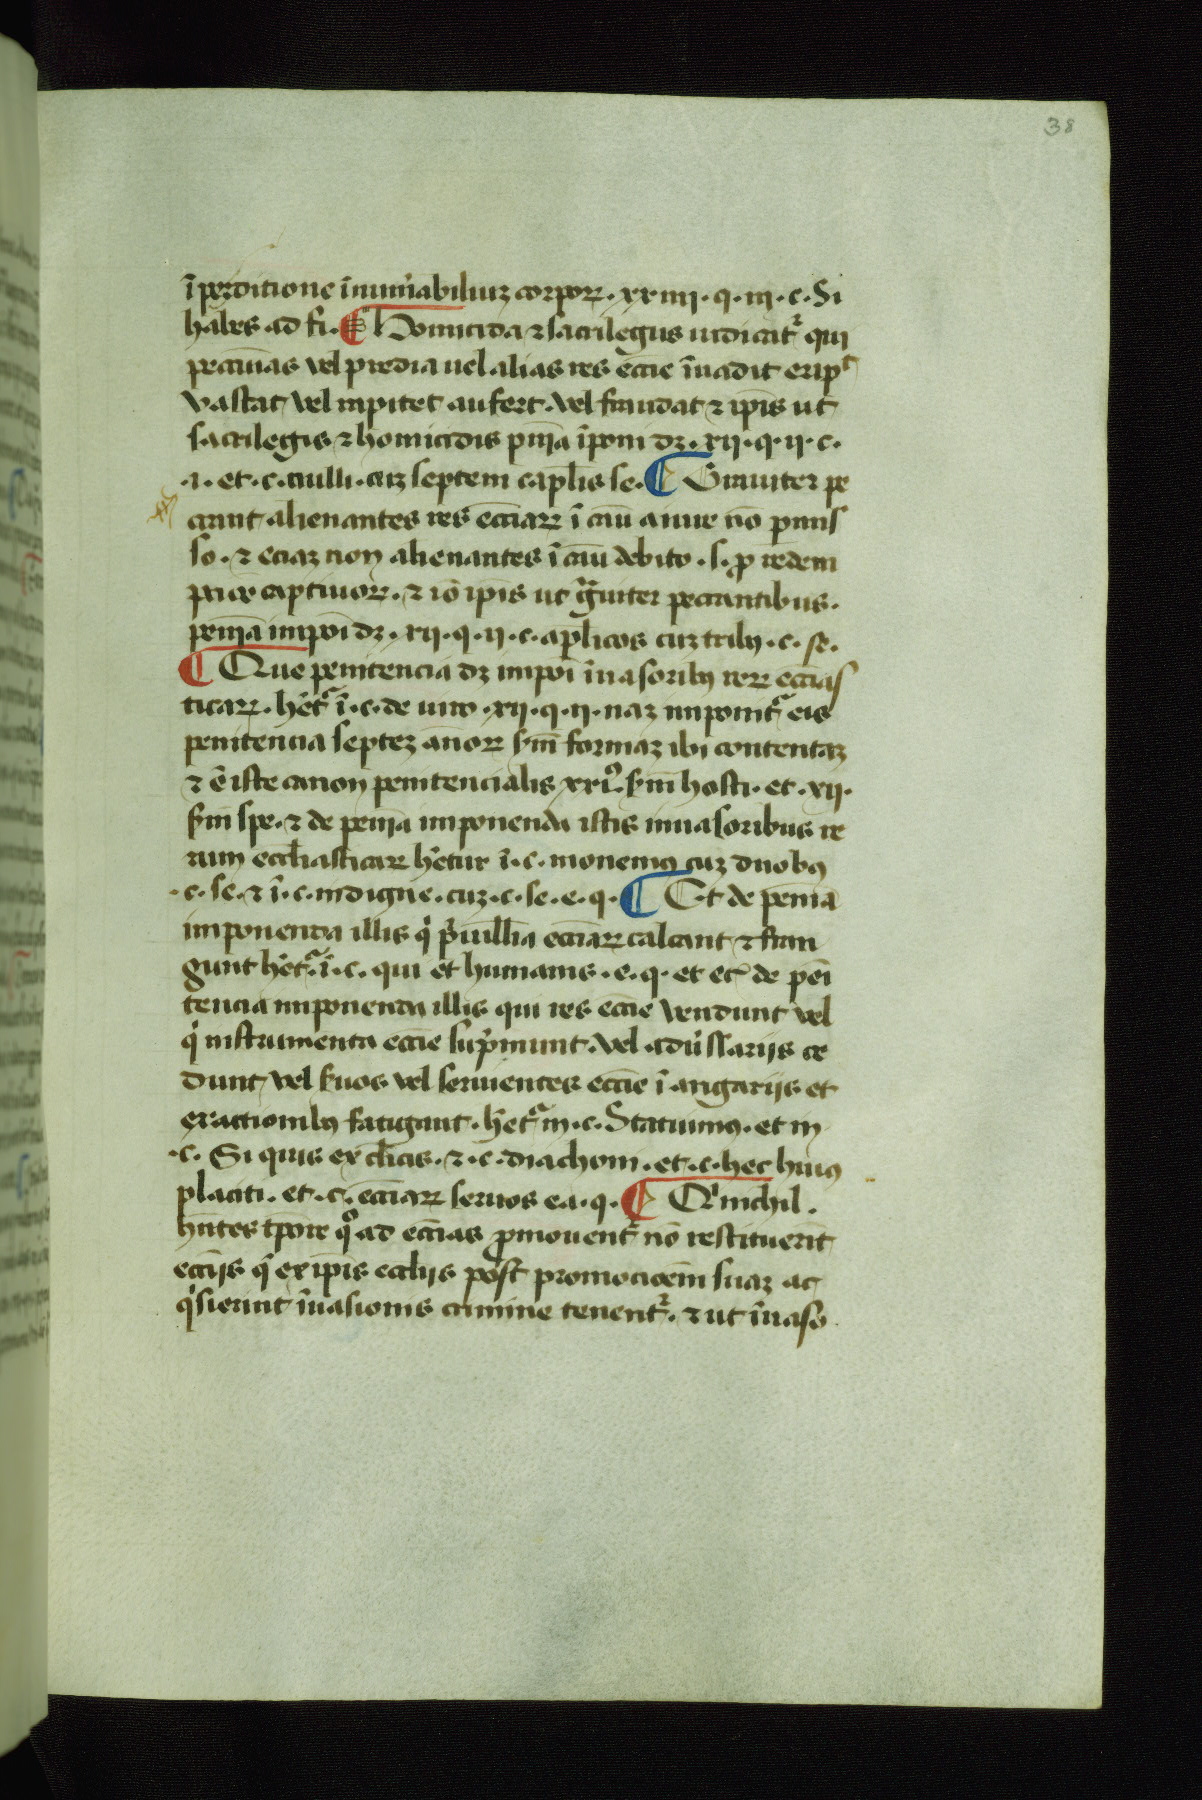 38
ī perditione īnumͥabiliuꝫ corporꝝ · xxiiii · q · iii · c · Si
habes · ad fi · ¶ Homicida ⁊ sacrilegus iudicat᷑ qui
pecunias vel predia uel alias res eccīe īuadit erip̄
vastat vel inpitet aufert · vel fraudat ⁊ ip̄is ut
sacrilegis ⁊ homicidis pn̄ia īponi dꝫ · xii · q · ii · c ·
· i · et · c · nulli · cuꝫ septem cap̄lis se · ¶ Grauiter pe
ccant alienantes res ecciaꝝ ī cāu a iure nō pmis
so · ⁊ eciaꝫ non alienantes ī cāu debito · s · ꝓ redem
pcione captiuoꝝ · ⁊ iō ip̄is ut gͣuiter peccantibus ·
peniā impoī dꝫ · xii · q · ii · c · aplicos cuꝫ tribꝰ · c · se ·
¶ Que penitencia dꝫ impoī īuasoribꝰ reꝝ eccias
ticaꝝ · hētᷓ ī · c · de uiro · xii · q · ii · naꝫ imponitᷓ eis
penitencia septeꝫ annoꝝ scd̄m formaꝫ ibi contentaꝫ
⁊ ē iste canon penitencialis xxiͦ · scd̄m hosti · et · xii ·
scd̄m spe · ⁊ de penīa imponenda istis inuasoribus re
rum eccl̄iasticaꝝ hētur ī · c · monemꝰ cuꝫ duobꝰ
· c · se · ⁊ ī · c · indigne · cuꝫ · c · se · e · q · ¶ Et de penīa
imponenda illis qͥ pͥuill̄ia ecciaꝝ calcant ⁊ fran
gunt hētᷓ · ī · c · qui et humanis · e · q · et ecͥ de peī
tencia imponenda illis qui res eccīe vendunt vel
qͥ instrumenta eccīe supͥmunt · vel aduͥsarijs ce
dunt vel suos vel seruientes eccīe ī angarijs et
exactionibꝰ fatigant · hētᷓ in · c · Statuimꝰ · et in
· c · Si quis ex cl̄icis · ⁊ · c · diachoni · et · c · hec huiꝰ
placiti · et · c · ecciaꝝ seruos ea · q · ¶ Qͥ nichil ·
hn̄tes tp̄ore qͦ ad eccias ꝓmouent᷑ nō restituerīt
eccijs qͤ ex ip̄is eccl̄ijs post promocōem suaꝫ ac
qͥsierint īuasionis crimine tenent᷑ · ⁊ ut īuaso